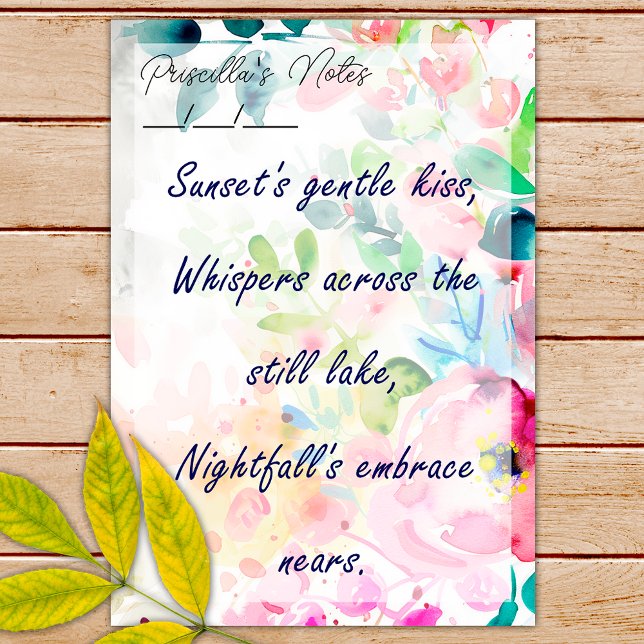 Priscilla's Notes
__/__/__
Sunset's gentle kiss,
Whispers across the
still lake,
Nightfall's embrace
nears.